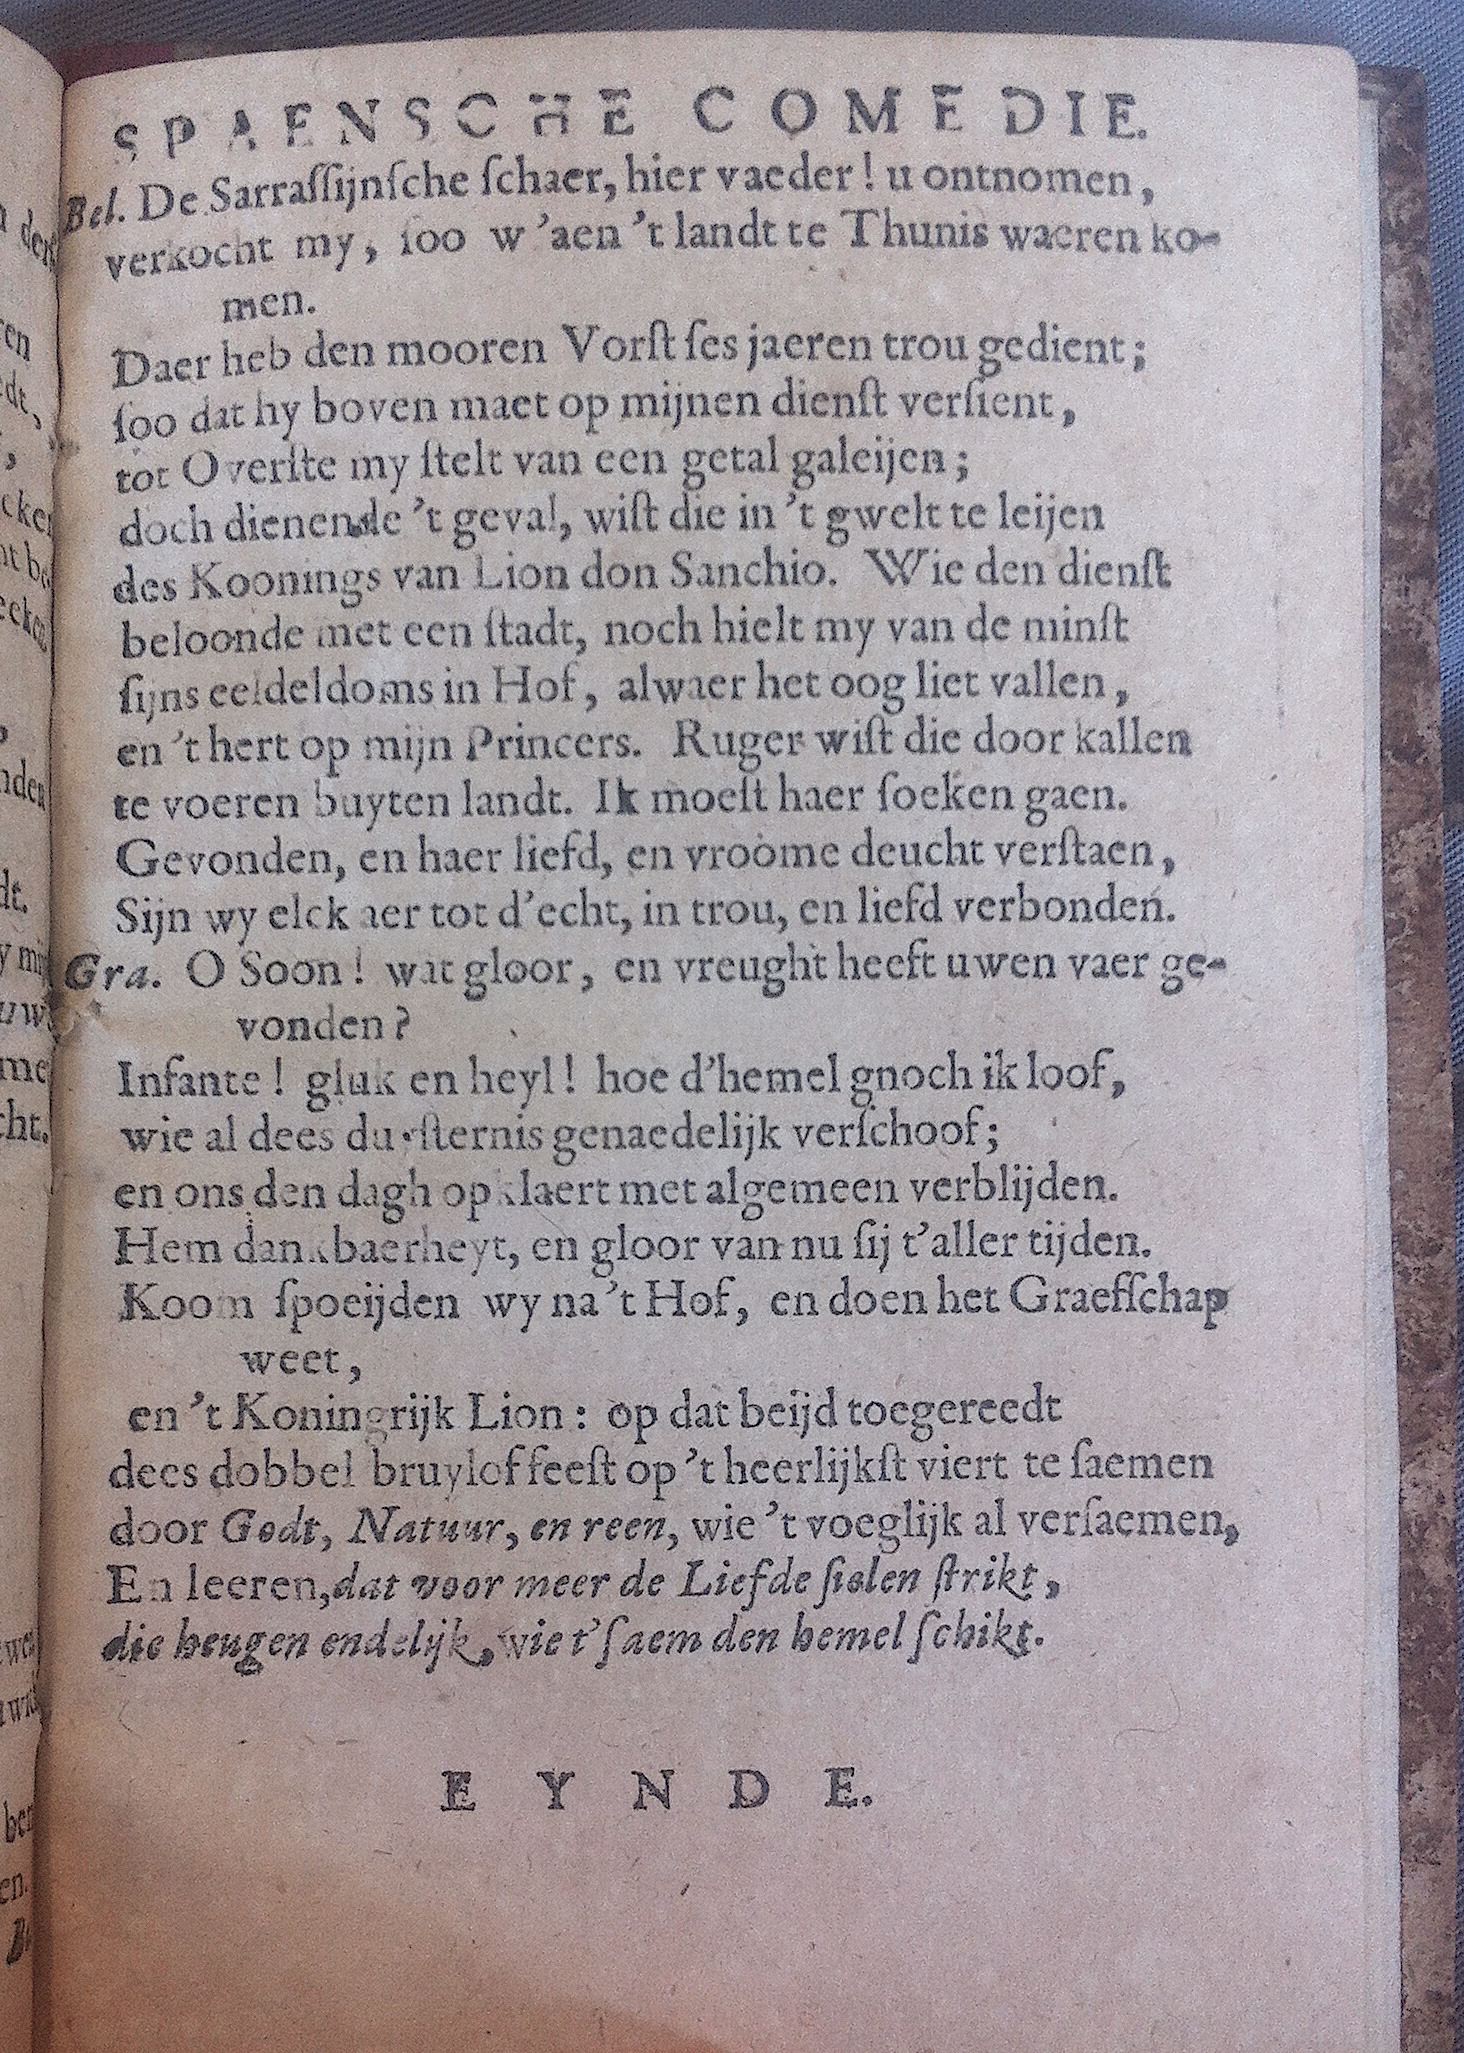 SPAENSCHE COMEDIE.
Bel. De Sarraſſijnſche ſchaer, hier vaeder ! u ontnomen,
verkocht my, ſoo w 'aen 't landt te Thunis waeren ko-
men.
Daer heb den mooren Vorſt ſes jaeren trou gedient;
ſoo dat hy boven maet op mijnen dienſt verſient,
tot Overſte my ſtelt van een getal galeijen;
doch dienende 't geval, wiſt die in 't gwelt te leijen
des Koonings van Lion don Sanchio. Wie den dienſt
beloonde met een ſtadt, noch hielt my van de minſt
ſijns eeldeldoms in Hof, alwaer het oog liet vallen,
en 't hert op mijn Princers. Ruger wiſt die door kallen
te voeren buyten landt. Ik moeſt haer ſoeken gaen.
Gevonden, en haer liefd, en vroome deucht verſtaen,
Sijn wy elck aer tot d'echt, in trou, en liefd verbonden.
Gra. O Soon ! wat gloor, en vreught heeft uwen vaer ge-
vonden?
Infante ! gluk en heyl ! hoe d'hemel gnoch ik loof,
wie al dees duyſternis genaedelijk verſchoof;
en ons den dagh opklaert met algemeen verblijden.
Hem dankbaerheyt, en gloor van nu ſij t'aller tijden.
Koom ſpoeijden wy na 't Hof, en doen het Graefſchap
weet,
en 't Koningrijk Lion : op dat beijd toegereedt
dees dobbel bruylof feeſt op 't heerlijkſt viert te ſaemen
door Godt, Natuur, en reen, wie 't voeglijk al verſaemen,
En leeren, dat voor meer de Liefde ſiolen ſtrikt,
die heugen endelijk, wie t'ſaem den hemel ſchikt.
EYNDE.